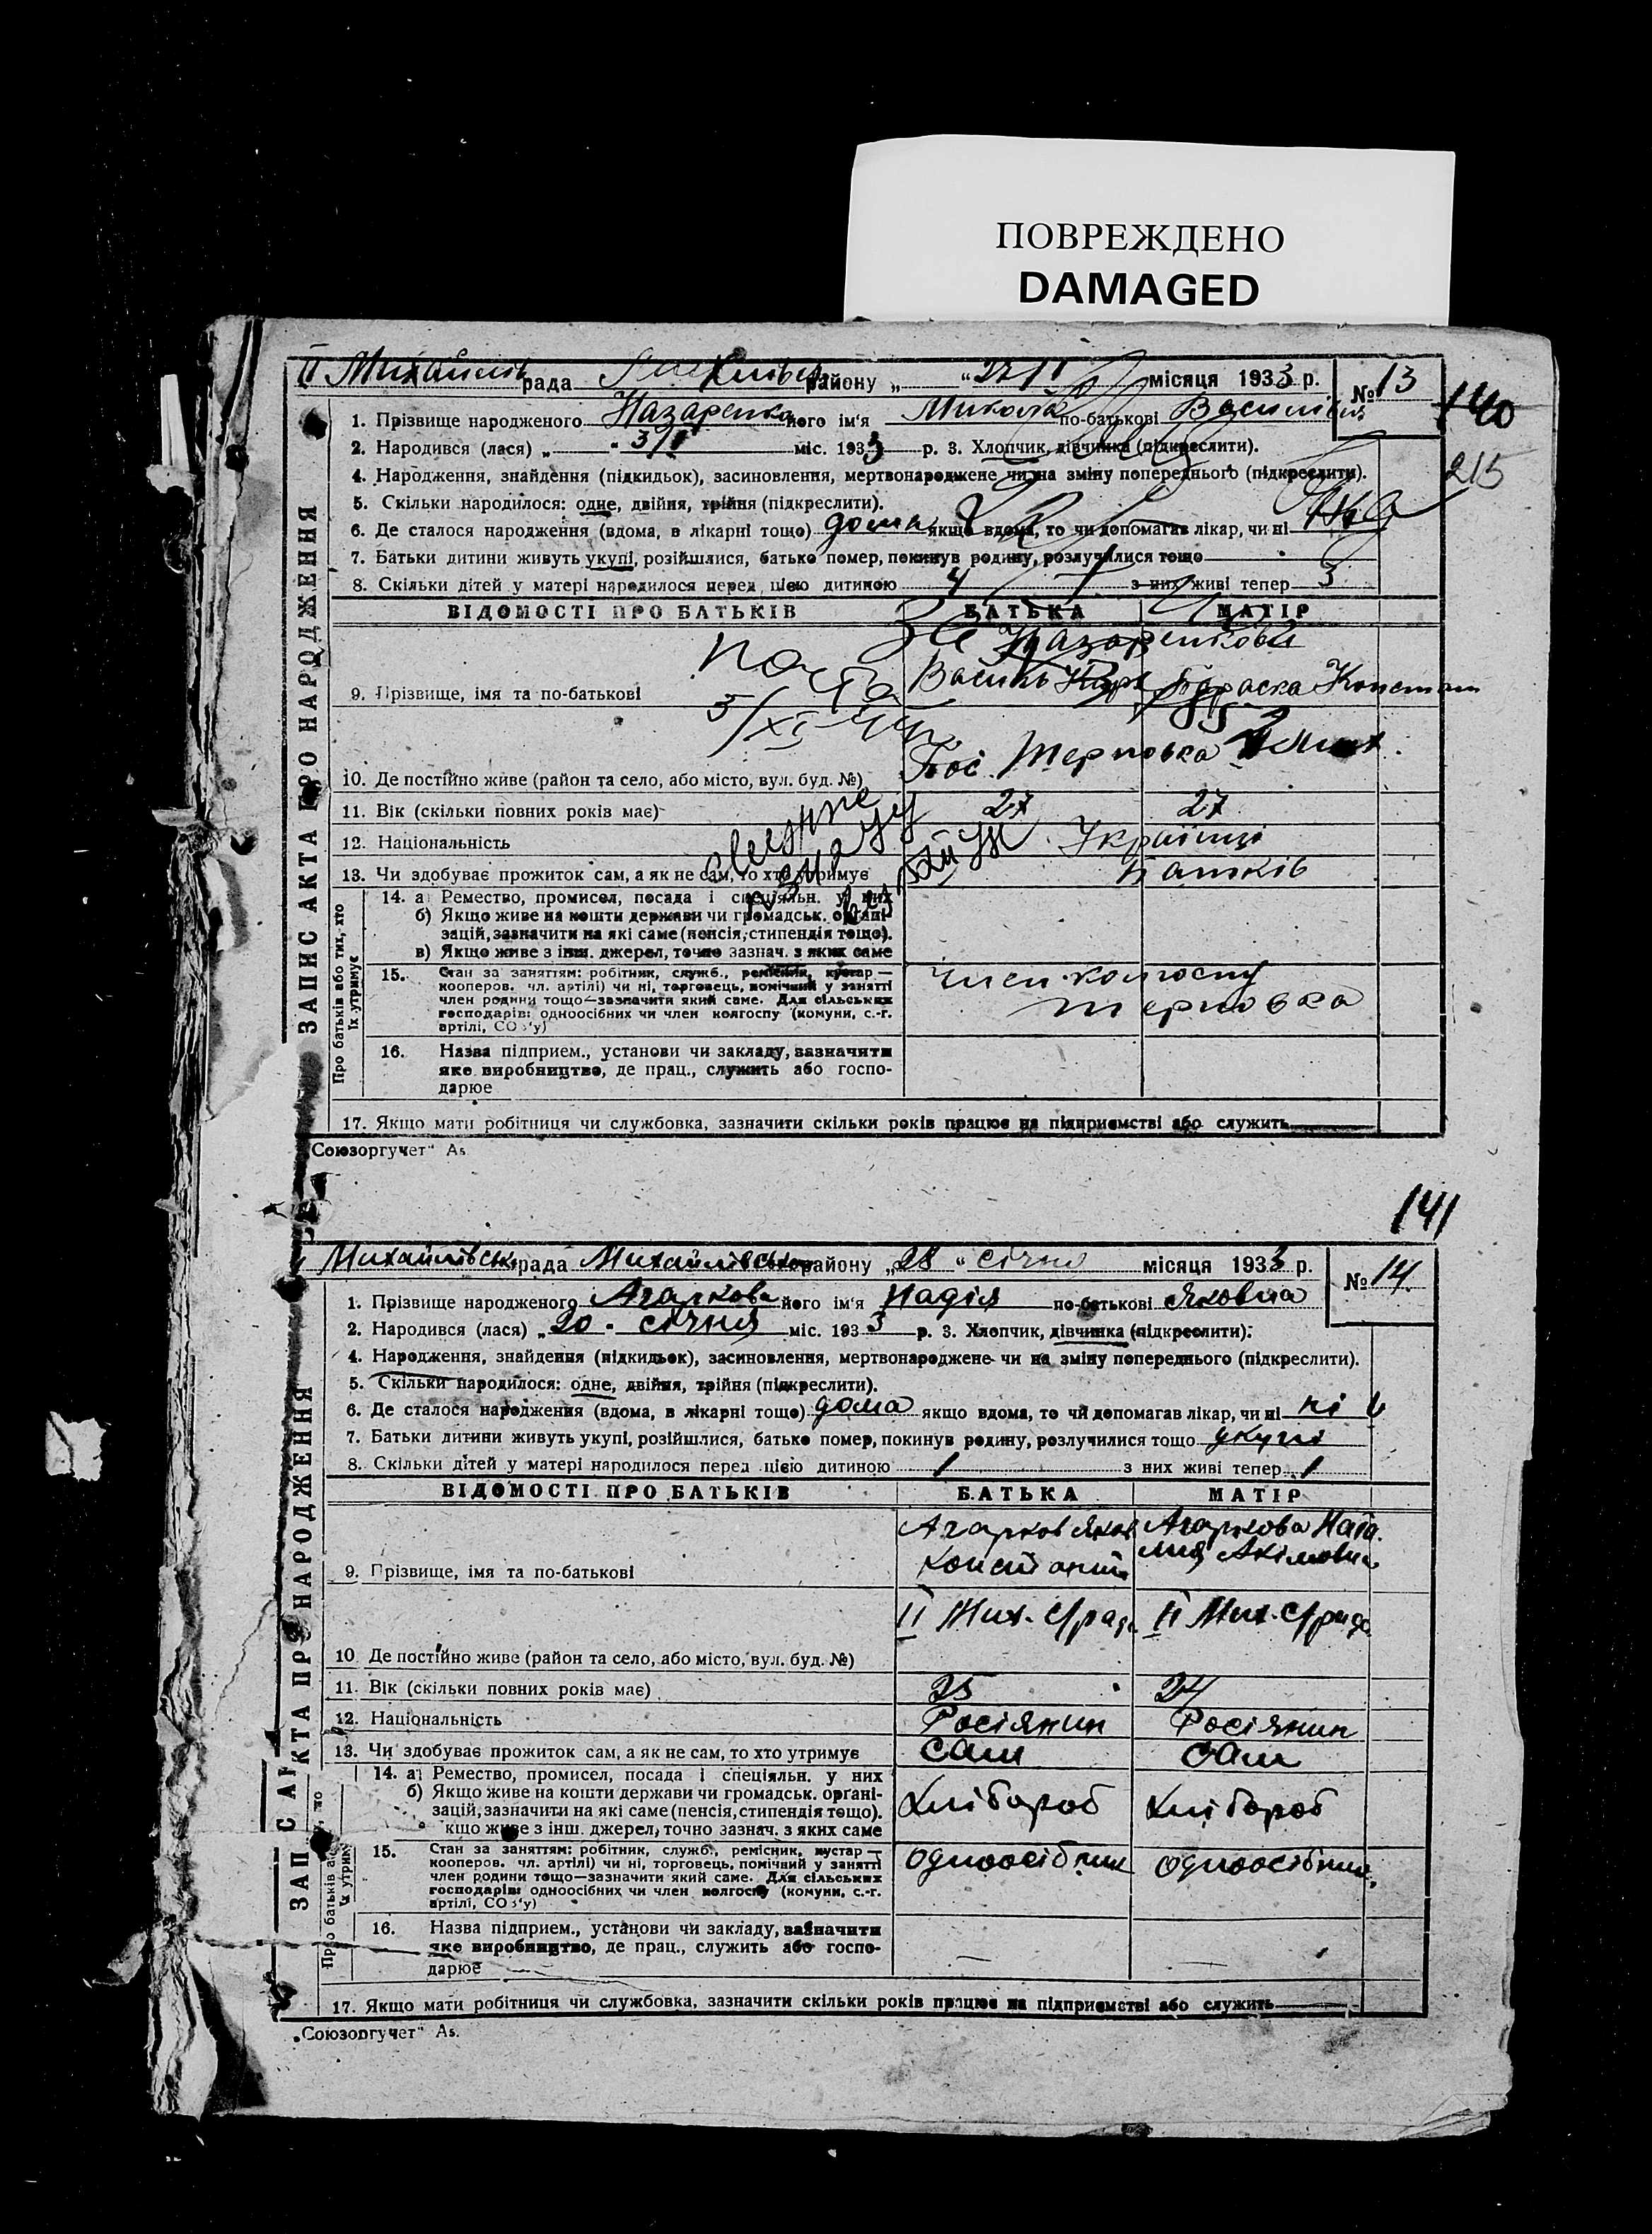 ПОВРЕЖДЕНО
DAMAGED
II Михайлів рада району „ “ 27/I місяця 1933 р. № 13
140
1. Прізвище народженого Назаренко його ім'я Микола по-батькові Василієв
2. Народився (лася) „ “ 3/I міс. 1933 р. 3. Хлопчик, дівчинка (підкреслити).
4. Народження, знайдення (підкидьок), засиновлення, мертвонароджене чи на зміну попереднього (підкреслити).
215
5. Скільки народилося: одне, двійня, трійня (підкреслити).
6. Де сталося народження (вдома, в лікарні тощо) дома якщо вдома, то чи допомагав лікар, чи ні
7. Батьки дитини живуть укупі, розійшлися, батько помер, покинув родину, розлучилися тощо
8. Скільки дітей у матері народилося перед цією дитиною 4 з них живі тепер 3
ВІДОМОСТІ ПРО БАТЬКІВ БАТЬКА МАТІР
Назаренкови
9. Прізвище, імя та по-батькові Василь Параска Констан
5/XI
10. Де постійно живе (район та село, або місто, вул. буд. №) Пос. Терновка
11. Вік (скільки повних років має) 27 27
12. Національність Українці
13. Чи здобуває прожиток сам, а як не сам, то хто утримує Батьків
14. а) Ремество, промисел, посада і спеціяльн. у них
б) Якщо живе на кошти держави чи громадськ. органі-
зацій, зазначити на які саме (пенсія, стипендія тощо).
в) Якщо живе з інш. джерел, точно зазнач. з яких саме
15. Стан за заняттям: робітник, служб., ремісник, кустар —
кооперов. чл. артілі) чи ні, торговець, помічний у занятті
член родини тощо—зазначити який саме. Для сільських
господарів: одноосібних чи член колгоспу (комуни, с.-г.
артілі, СОЗ'у)
Член колгоспу
Терновка
16. Назва підприєм., установи чи закладу, зазначити
яке виробництво, де прац., служить або госпо-
дарює
17. Якщо мати робітниця чи службовка, зазначити скільки років працює на підприємстві або служить
ЗАПИС АКТА ПРО НАРОДЖЕННЯ
Про батьків або тих, хто
їх утримує
Союзоргучет" As
141
Михайлівськ рада Михайлівського району „28“ січня місяця 1933 р. № 14.
1. Прізвище народженого Агаркова його ім'я Надія по-батькові Яковна
2. Народився (лася) „20. січня міс. 1933 р. 3. Хлопчик, дівчинка (підкреслити).
4. Народження, знайдення (підкидьок), засиновлення, мертвонароджене чи на зміну попереднього (підкреслити).
5. Скільки народилося: одне, двійня, трійня (підкреслити).
6. Де сталося народження (вдома, в лікарні тощо) дома якщо вдома, то чи допомагав лікар, чи ні ні
7. Батьки дитини живуть укупі, розійшлися, батько помер, покинув родину, розлучилися тощо укупі
8. Скільки дітей у матері народилося перед цією дитиною 1 з них живі тепер 1
ВІДОМОСТІ ПРО БАТЬКІВ БАТЬКА МАТІР
Агарков Яков Агаркова Ната
9. Прізвище, імя та по-батькові Констант лия Акімовна
II Мих. с/рада II Мих. с/рада
10 Де постійно живе (район та село, або місто, вул. буд. №)
11. Вік (скільки повних років має) 25 24
12. Національність Росіянин Росіянин
13. Чи здобуває прожиток сам, а як не сам, то хто утримує сам сам
14. а) Ремество, промисел, посада і спеціяльн. у них
б) Якщо живе на кошти держави чи громадськ. органі-
зацій, зазначити на які саме (пенсія, стипендія тощо).
кщо живе з інш. джерел, точно зазнач. з яких саме
Хлібороб Хлібороб
15. Стан за заняттям: робітник, служб., ремісник, кустар —
кооперов. чл. артілі) чи ні, торговець, помічний у занятті
член родини тощо—зазначити який саме. Для сільських
господарів: одноосібних чи член колгоспу (комуни, с.-г.
артілі, СОЗ'у)
одноосібник одноосібник
16. Назва підприєм., установи чи закладу, зазначити
яке виробництво, де прац., служить або госпо-
дарює
17. Якщо мати робітниця чи службовка, зазначити скільки років працює на підприємстві або служить
ЗАПИС АКТА ПРО НАРОДЖЕННЯ
„Союзоргучет" As.